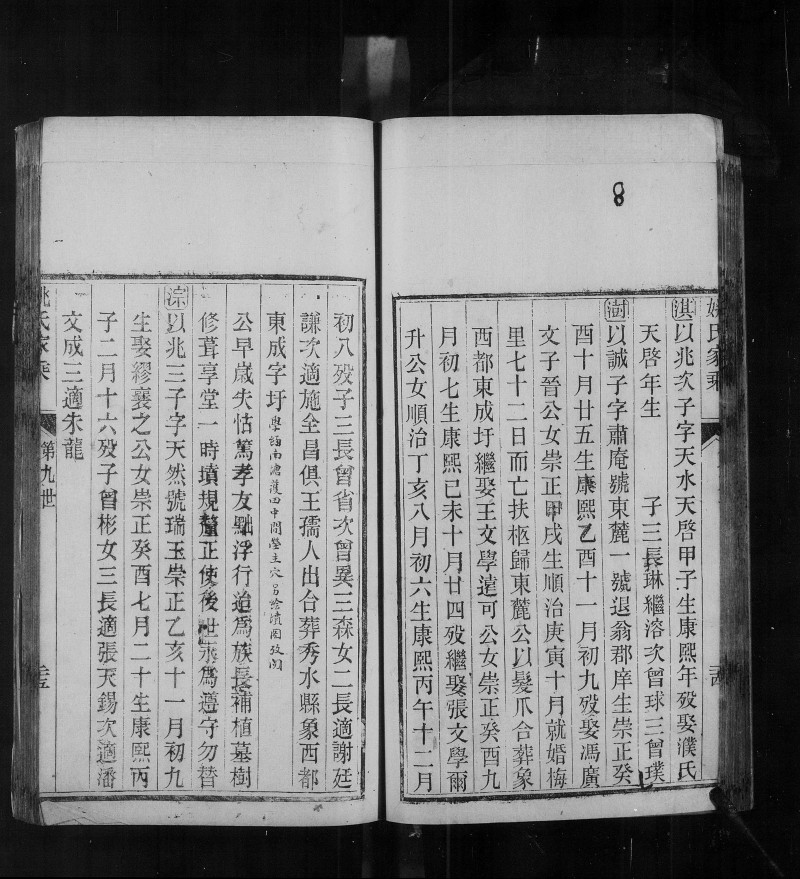 8
姚氏家乘
淇以兆次子字天水天啓甲子生康熙年歿娶濮氏
天啓年生 子三長琳繼溶次曾球三曾璞
澍以誠子字肅庵號東麓一號退翁郡庠生崇正癸
酉十月廿五生康熙乙酉十一月初九歿娶馮廣
文子晉公女崇正甲戌生順治庚寅十月就婚梅
里七十二日而亡扶柩歸東麓公以髮爪合葬象
西都東成圩繼娶王文學遠可公女崇正癸酉九
月初七生康熙己未十月廿四歿繼娶張文學爾
升公女順治丁亥八月初六生康熙丙午十二月
初八歿子三長曾省次曾異三森女二長適謝廷
謙次適施全昌俱王孺人出合葬秀水縣象西都
東成字圩
公早歲失怙篤孝友黜浮行迨為族長補植墓樹
修葺享堂一時墳規釐正使後世永為遵守勿替
淙以兆三子字天然號瑞玉崇正乙亥十一月初九
生娶繆襄之公女崇正癸酉七月二十生康熙丙
子二月十六歿子曾彬女三長適張天錫次適潘
文成三適朱龍
姚氏家乘 第九世